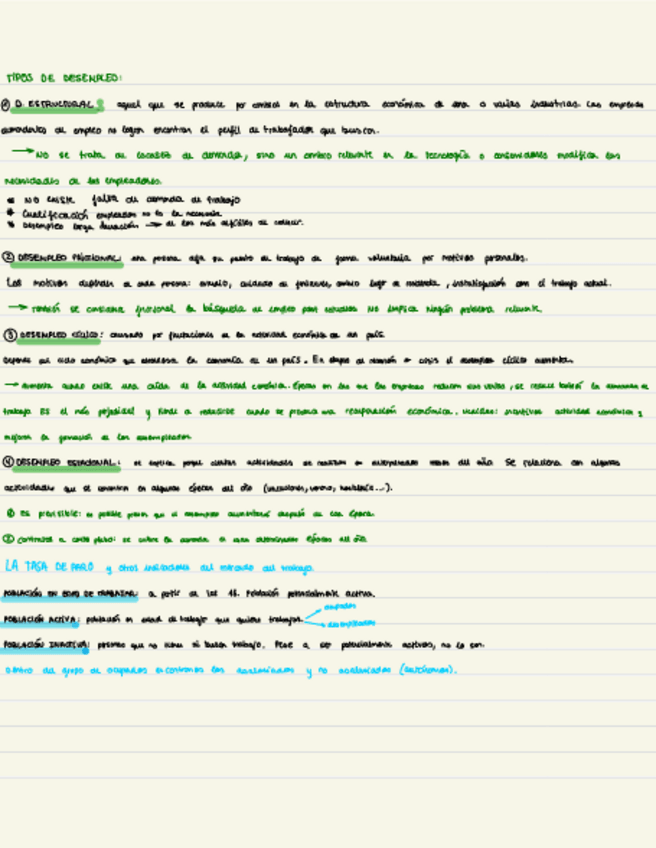 TIPOS DE DESEMPLEO:
① D. ESTRUCTURAL: aquel que se produce por cambios en la estructura económica de una o varias industrias. Las empresas
demandantes de empleo no logran encontrar el perfil de trabajador que buscan.
→ No se trata de escasez de demanda, sino un cambio relevante en la tecnología o consumidores modifica las
necesidades de los empleadores.
* NO EXISTE falta de demanda de trabajo
* Cualificación empleados no es la necesaria
* Desempleo larga duración → de los más difíciles de reducir.
② DESEMPLEO FRICCIONAL: una persona deja su puesto de trabajo de forma voluntaria por motivos personales.
Los motivos dependen de cada persona: estudio, cuidado de familiares, cambio lugar de residencia, insatisfacción con el trabajo actual.
→ También se considera friccional la búsqueda de empleo post estudios NO implica ningún problema relevante.
③ DESEMPLEO CÍCLICO: causado por fluctuaciones de la actividad económica de un país
Depende del ciclo económico que atraviesa la economía de un país. En etapas de recesión o crisis el desempleo cíclico aumenta.
→ aumenta cuando existe una caída de la actividad económica. Épocas en las que las empresas reducen sus ventas, se reduce también la demanda de
trabajo ES el más perjudicial y tiende a reducirse cuando se produce una recuperación económica. incentivos actividad económica y
mejoran la formación de los desempleados
④ DESEMPLEO ESTACIONAL: se explica porque ciertas actividades se realizan en determinados meses del año Se relaciona con algunas
actividades que se concentran en algunas épocas del año (vacaciones, verano, hostelería...).
① Es previsible: es posible prever que el desempleo aumentará después de esa época.
② Contratos a corto plazo: se cubre la demanda en unas determinadas épocas del año
LA TASA DE PARO y otros indicadores del mercado del trabajo.
POBLACIÓN EN EDAD DE TRABAJAR: a partir de los 16. Población potencialmente activa.
POBLACIÓN ACTIVA: población en edad de trabajo que quiere trabajar → ocupados
→ desempleados
POBLACIÓN INACTIVA: personas que no tienen ni buscan trabajo. Pese a ser potencialmente activos, no lo son.
Dentro del grupo de ocupados encontramos los asalariados y no asalariados (autónomos).